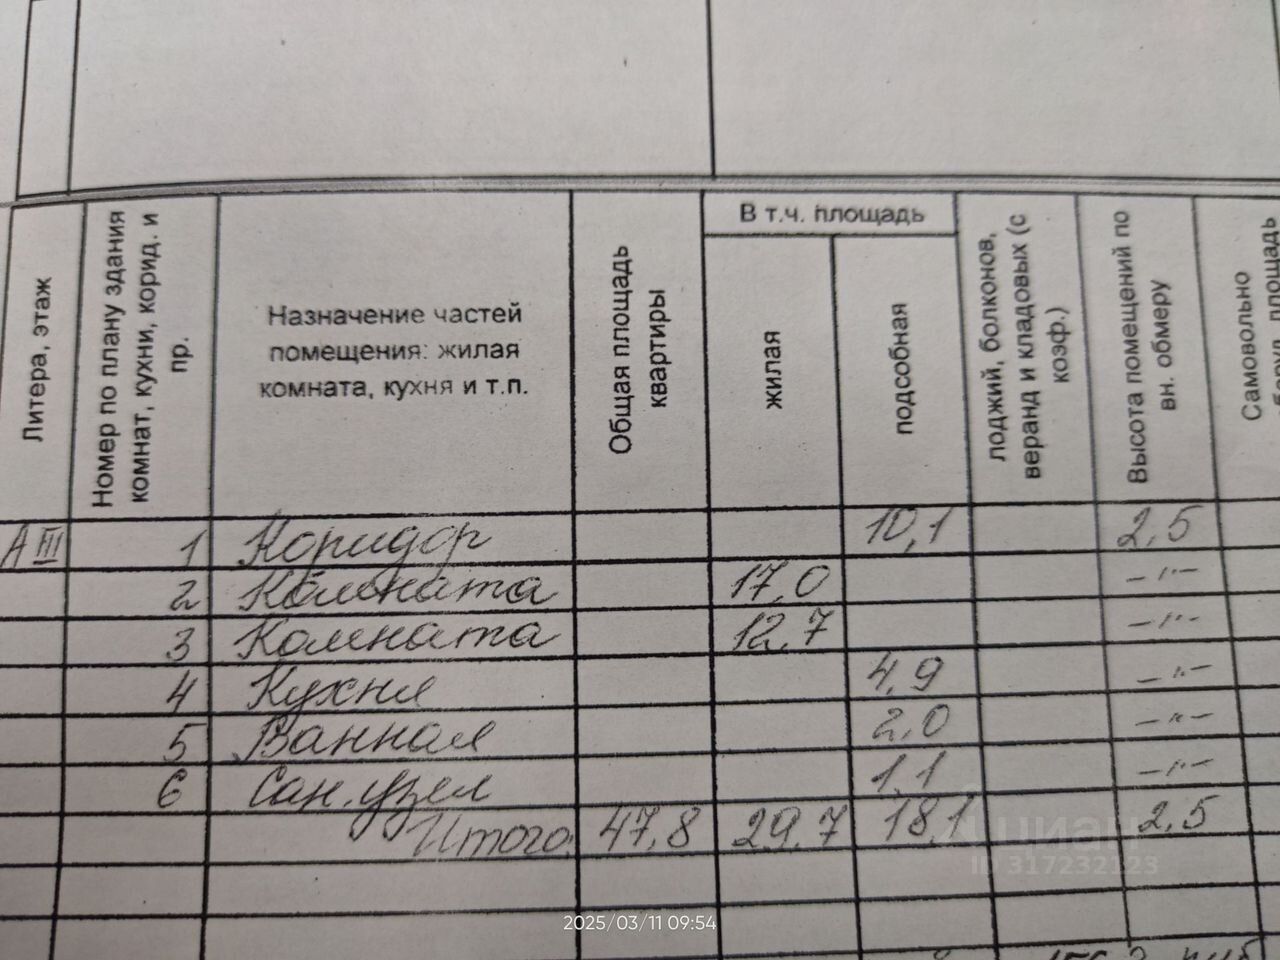 Литера, этаж
Номер по плану здания
комнат, кухни, корид. и
пр.
Назначение частей
помещения: жилая
комната, кухня и т.п.
Общая площадь
квартиры
В т.ч. площадь
жилая
подсобная
лоджий, болконов,
веранд и кладовых (с
коэф.)
Высота помещений по
вн. обмеру
Самовольно
площадь
А III 1 Коридор 10,1 2,5
2 Комната 17,0 –"–
3 Комната 12,7 –"–
4 Кухня 4,9 –"–
5 Ванная 2,0 –"–
6 Сан. узел 1,1 –"–
Итого: 47,8 29,7 18,1 2,5
циан
ID 317232123
2025/03/11 09:54